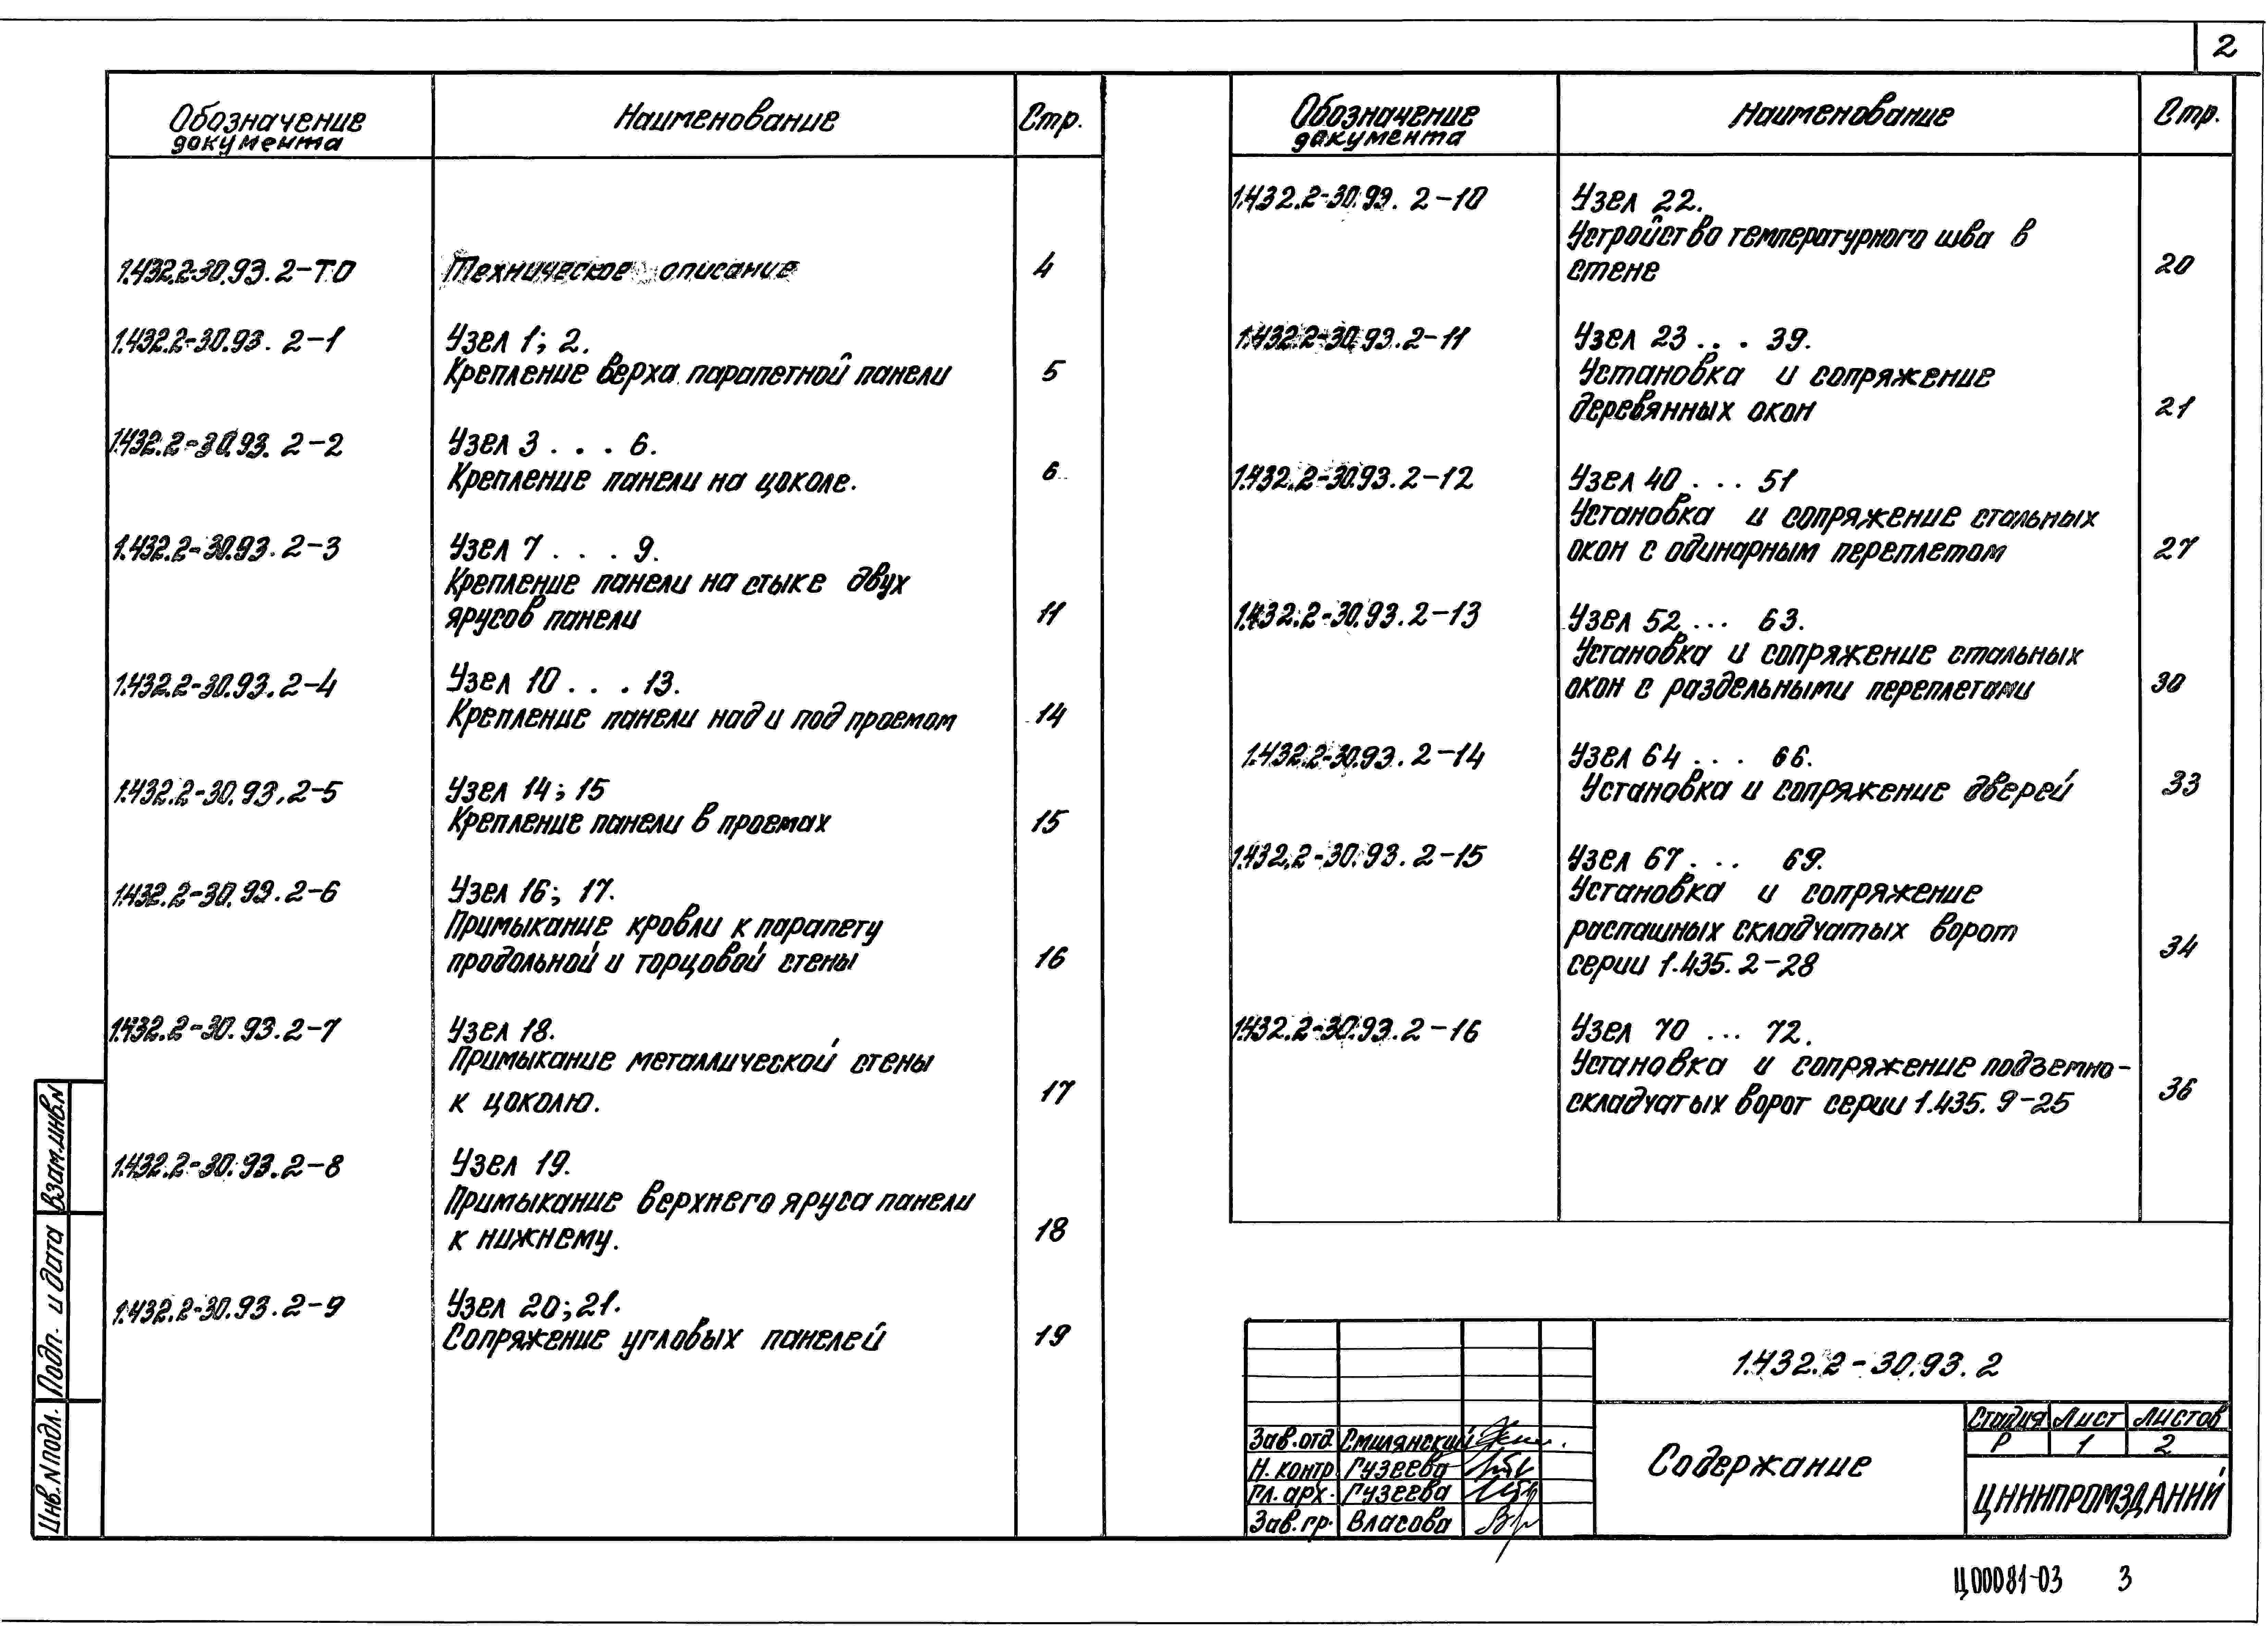 2
Обозначение документа Наименование Стр.
1.432.2-30.93.2-ТО Техническое описание 4
1.432.2-30.93.2-1 Узел 1; 2.
Крепление верха парапетной панели 5
1.432.2-30.93.2-2 Узел 3 . . . 6.
Крепление панели на цоколе. 6
1.432.2-30.93.2-3 Узел 7 . . . 9.
Крепление панели на стыке двух
ярусов панели 11
1.432.2-30.93.2-4 Узел 10 . . . 13.
Крепление панели над и под проемом 14
1.432.2-30.93.2-5 Узел 14; 15
Крепление панели в проемах 15
1.432.2-30.93.2-6 Узел 16; 17.
Примыкание кровли к парапету
продольной и торцовой стены 16
1.432.2-30.93.2-7 Узел 18.
Примыкание металлической стены
к цоколю. 17
1.432.2-30.93.2-8 Узел 19.
Примыкание верхнего яруса панели
к нижнему. 18
1.432.2-30.93.2-9 Узел 20; 21.
Сопряжение угловых панелей 19
Обозначение документа Наименование Стр.
1.432.2-30.93.2-10 Узел 22.
Устройство температурного шва в
стене 20
1.432.2-30.93.2-11 Узел 23 . . . 39.
Установка и сопряжение
деревянных окон 21
1.432.2-30.93.2-12 Узел 40 . . . 51
Установка и сопряжение стальных
окон с одинарным переплетом 27
1.432.2-30.93.2-13 Узел 52 ... 63.
Установка и сопряжение стальных
окон с раздельными переплетами 30
1.432.2-30.93.2-14 Узел 64 . . . 66.
Установка и сопряжение дверей 33
1.432.2-30.93.2-15 Узел 67 . . . 69.
Установка и сопряжение
распашных складчатых ворот
серии 1.435.2-28 34
1.432.2-30.93.2-16 Узел 70 ... 72.
Установка и сопряжение подъемно-
складчатых ворот серии 1.435.9-25 36
Взам.инв.N
Подп. и дата
Инв.N подл.
1.432.2-30.93.2
Зав.отд Смилянский
Н.контр Гузеева
Гл.арх. Гузеева
Зав.гр. Власова
Содержание
Стадия Лист Листов
Р 1 2
ЦНИИПРОМЗДАНИЙ
Ц00081-03 3